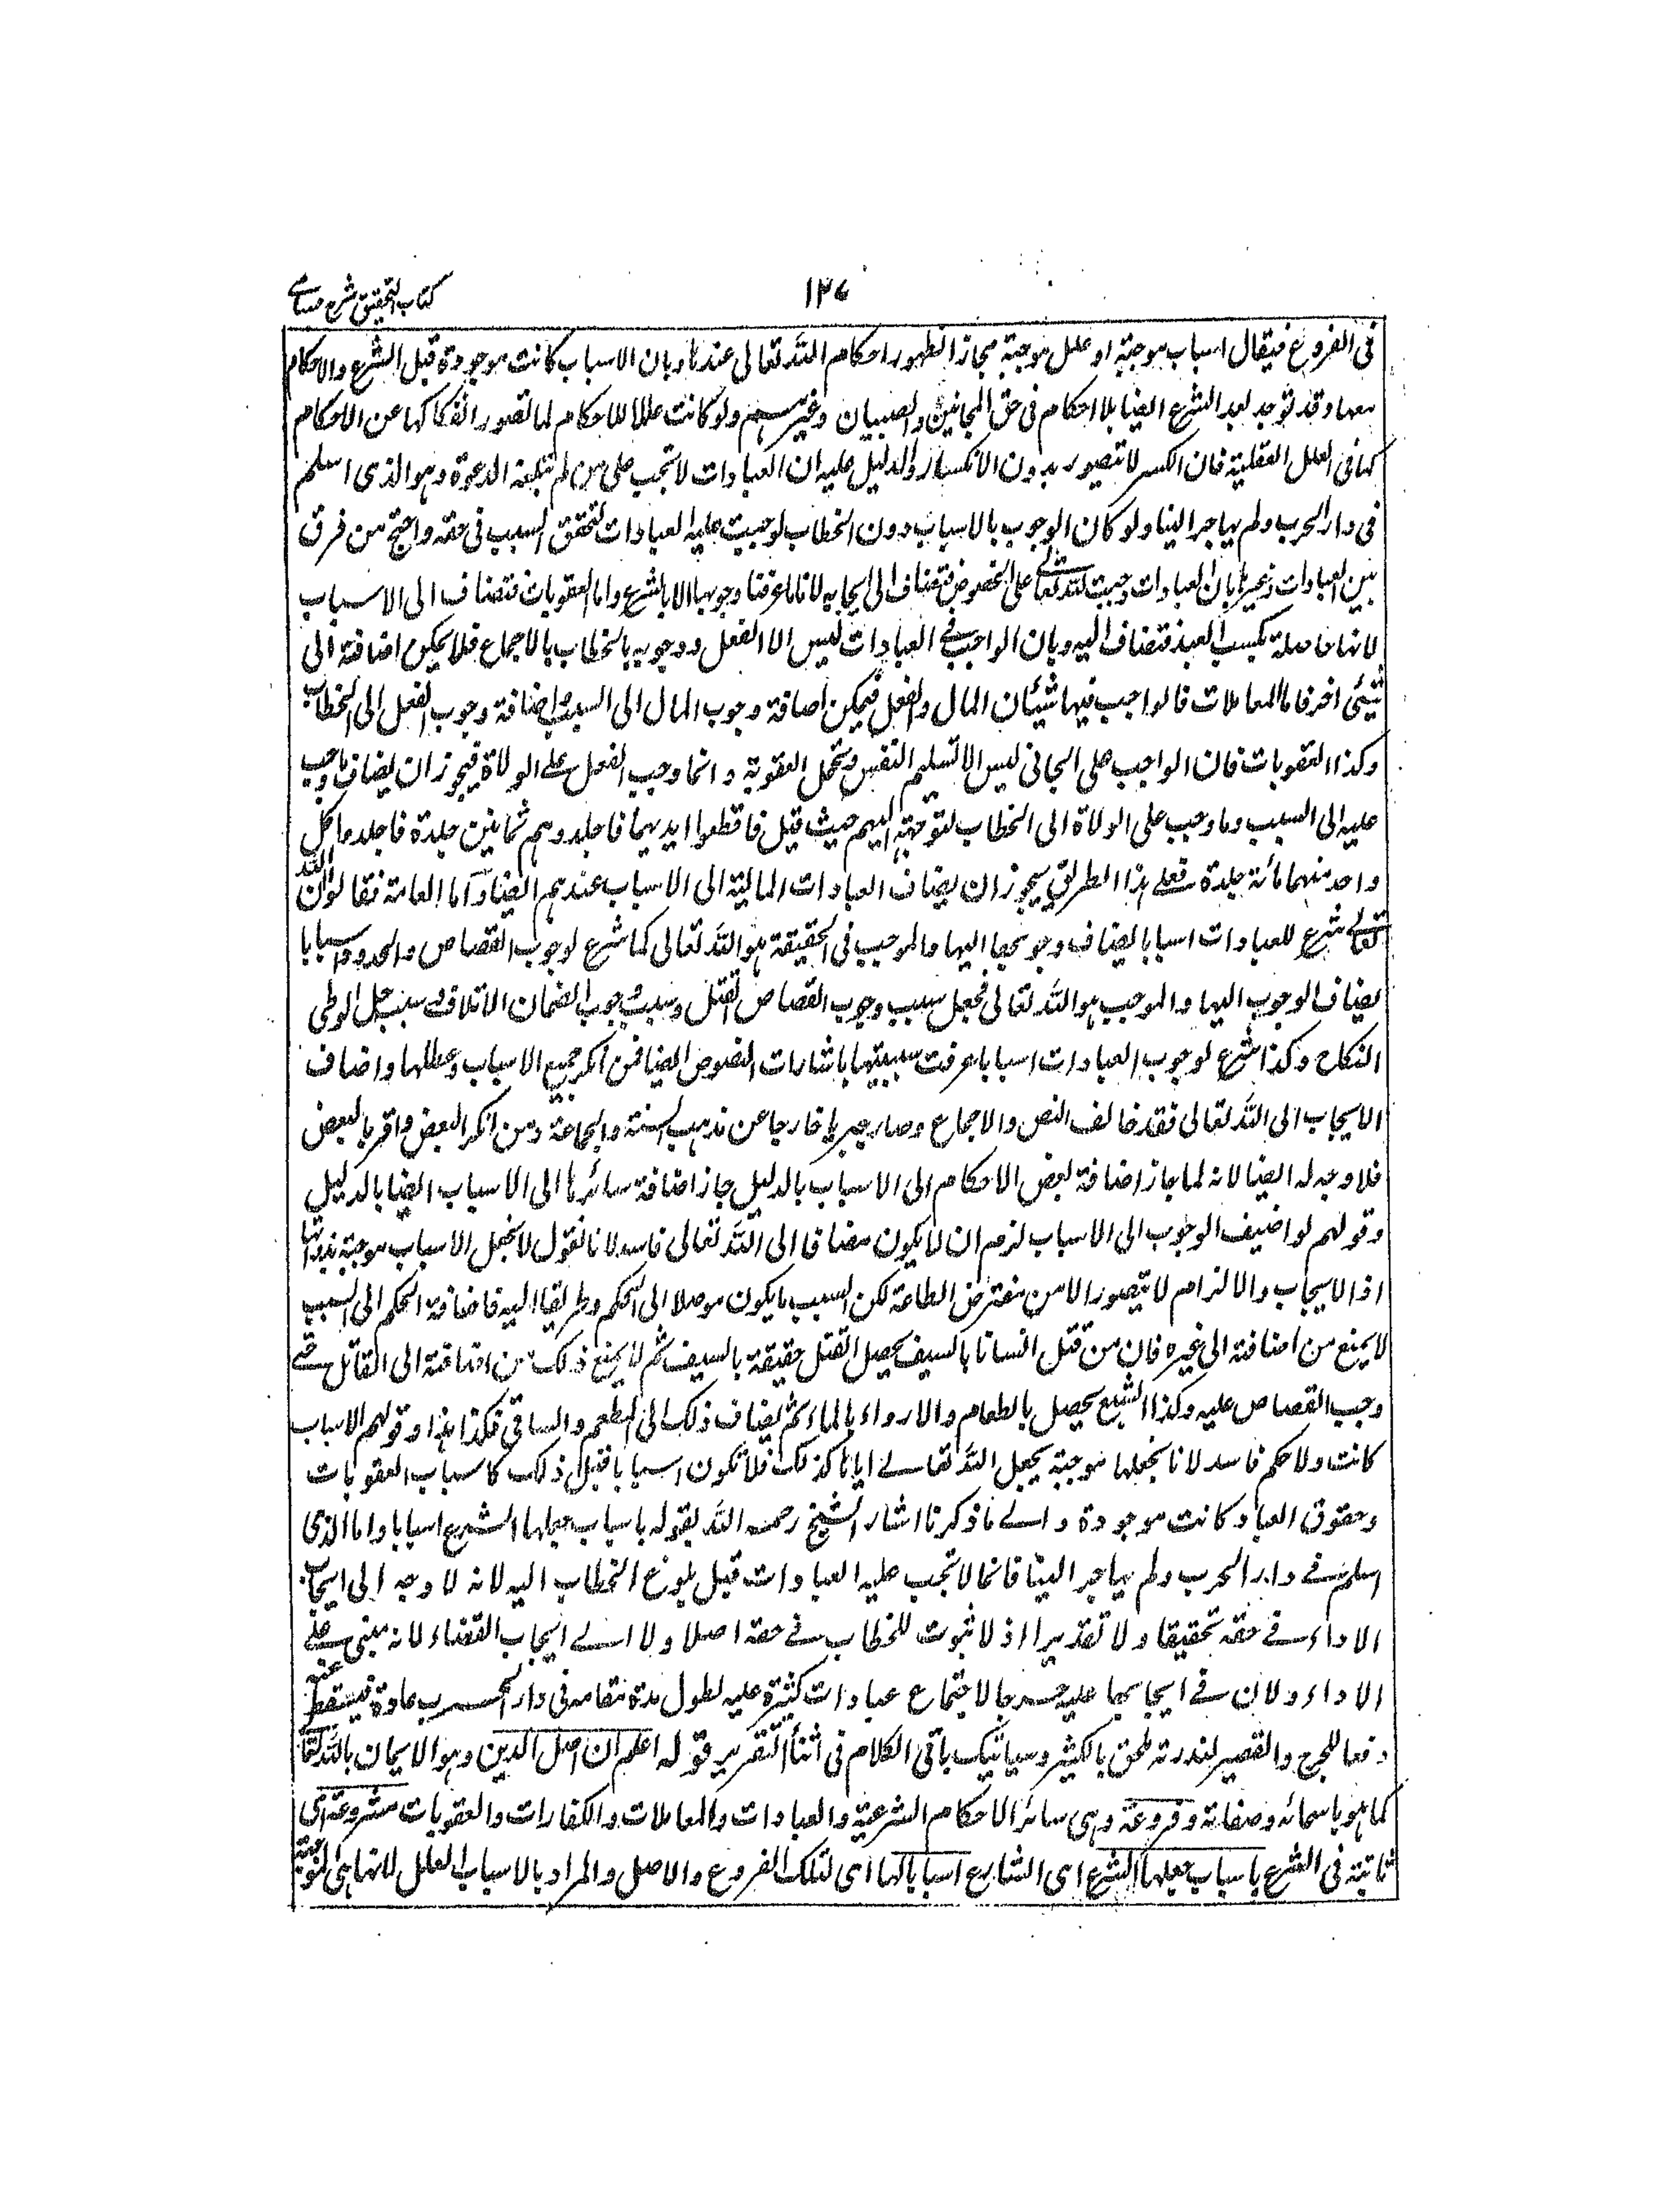 كتاب التحقيق شرح حسامي
١٣٧
فى الفروع فيقال اسباب موجبة او علل موجبة مجازا لظهور احكام الله تعالى عندها وبان الاسباب كانت موجودة قبل الشرع والاحكام
معها وقد توجد بعد الشرع ايضا بلا احكام فى حق المجانين والصبيان وغيرهم ولو كانت عللا للاحكام لما تصور انفكاكها عن الاحكام
كما فى العلل العقلية فان الكسر لا يتصور بدون الانكسار والدليل عليه ان العبادات لا تجب على من لم تبلغه الدعوة وهو الذى اسلم
فى دار الحرب ولم يهاجر الينا ولو كان الوجوب بالاسباب دون الخطاب لوجبت عليه العبادات لتحقق السبب فى حقه واحتج من فرق
بين العبادات وغيرها بان العبادات وجبت لله تعالى على الخصوص فتضاف الى ايجابه لانا ما عرفنا وجوبها الا بالشرع واما العقوبات فتضاف الى الاسباب
لانها حاصلة بكسب العبد فتضاف اليه وبان الواجب فى العبادات ليس الا الفعل ووجوبه بالخطاب بالاجماع فلا يمكن اضافته الى
شيئ اخر فاما المعاملات فالواجب فيها شيئان المال والفعل فيمكن اضافة وجوب المال الى السبب واضافة وجوب الفعل الى الخطاب
وكذا العقوبات فان الواجب على الجانى ليس الا تسليم النفس وتحمل العقوبة وانما وجب الفعل على الولاة فيجوز ان يضاف ما وجب
عليه الى السبب وما وجب على الولاة الى الخطاب لتوجهه اليهم حيث قيل فاقطعوا ايديهما فاجلدوهم ثمانين جلدة فاجلدوا كل
واحد منهما مائة جلدة فعلى هذا الطريق يجوز ان يضاف العبادات المالية الى الاسباب عندهم ايضا واما العامة فقالوا ان الله
تعالى شرع للعبادات اسبابا يضاف وجوبها اليها والموجب فى الحقيقة هو الله تعالى كما شرع لوجوب القصاص والحدود اسبابا
يضاف الوجوب اليها والموجب هو الله تعالى فجعل سبب وجوب القصاص القتل وسبب وجوب الضمان الاتلاف وسبب حل الوطى
النكاح وكذا شرع لوجوب العبادات اسبابا عرفت سببيتها باشارات النصوص ايضا فمن انكر جميع الاسباب وعطلها واضاف
الايجاب الى الله تعالى فقد خالف النص والاجماع وصار جبريا خارجا عن مذهب السنة والجماعة ومن انكر البعض واقر بالبعض
فلا وجه له ايضا لانه لما جاز اضافة بعض الاحكام الى الاسباب بالدليل جاز اضافة سائرها الى الاسباب ايضا بالدليل
وقولهم لو اضيف الوجوب الى الاسباب لزم ان لا يكون مضافا الى الله تعالى فاسد لانا نقول لا نجعل الاسباب موجبة بذواتها
اذ الايجاب والالزام لا يتصور الا من مفترض الطاعة لكن السبب ما يكون موصلا الى الحكم وطريقا اليه فاضافة الحكم الى السبب
لا يمنع من اضافته الى غيره فان من قتل انسانا بالسيف يحصل القتل حقيقة بالسيف ثم لا يمنع ذلك من اضافته الى القاتل حتى
وجب القصاص عليه وكذا الشبع يحصل بالطعام والارواء بالماء ثم يضاف ذلك الى المطعم والساقى فكذا هذا وقولهم الاسباب
كانت ولا حكم فاسد لانا نجعلها موجبة بجعل الله تعالى اياها كذلك فلا تكون اسبابا قبل ذلك كاسباب العقوبات
وحقوق العباد كانت موجودة والى ما ذكرنا اشار الشيخ رحمه الله بقوله باسباب جعلها الشرع اسبابا واما الذى
اسلم فى دار الحرب ولم يهاجر الينا فانما لا تجب عليه العبادات قبل بلوغ الخطاب اليه لانه لا وجه الى ايجاب
الاداء فى حقه تحقيقا ولا تقديرا اذ لا ثبوت للخطاب فى حقه اصلا ولا الى ايجاب القضاء لانه مبنى على
الاداء ولان فى ايجابها عليه حرجا لاجتماع عبادات كثيرة عليه لطول مدة مقامه فى دار الحرب عادة فيسقط عنه
دفعا للحرج والقصير لندرته ملحق بالكثير وسيأتيك باقى الكلام فى اثناء التقرير قوله اعلم ان اصل الدين وهو الايمان بالله تعالى
كما هو باسمائه وصفاته وفروعه وهى سائر الاحكام الشرعية والعبادات والمعاملات والكفارات والعقوبات مشروعة اى
ثابتة فى الشرع باسباب جعلها الشرع اى الشارع اسبابا لها اى لتلك الفروع والاصل والمراد بالاسباب العلل لانها هى الموجبة